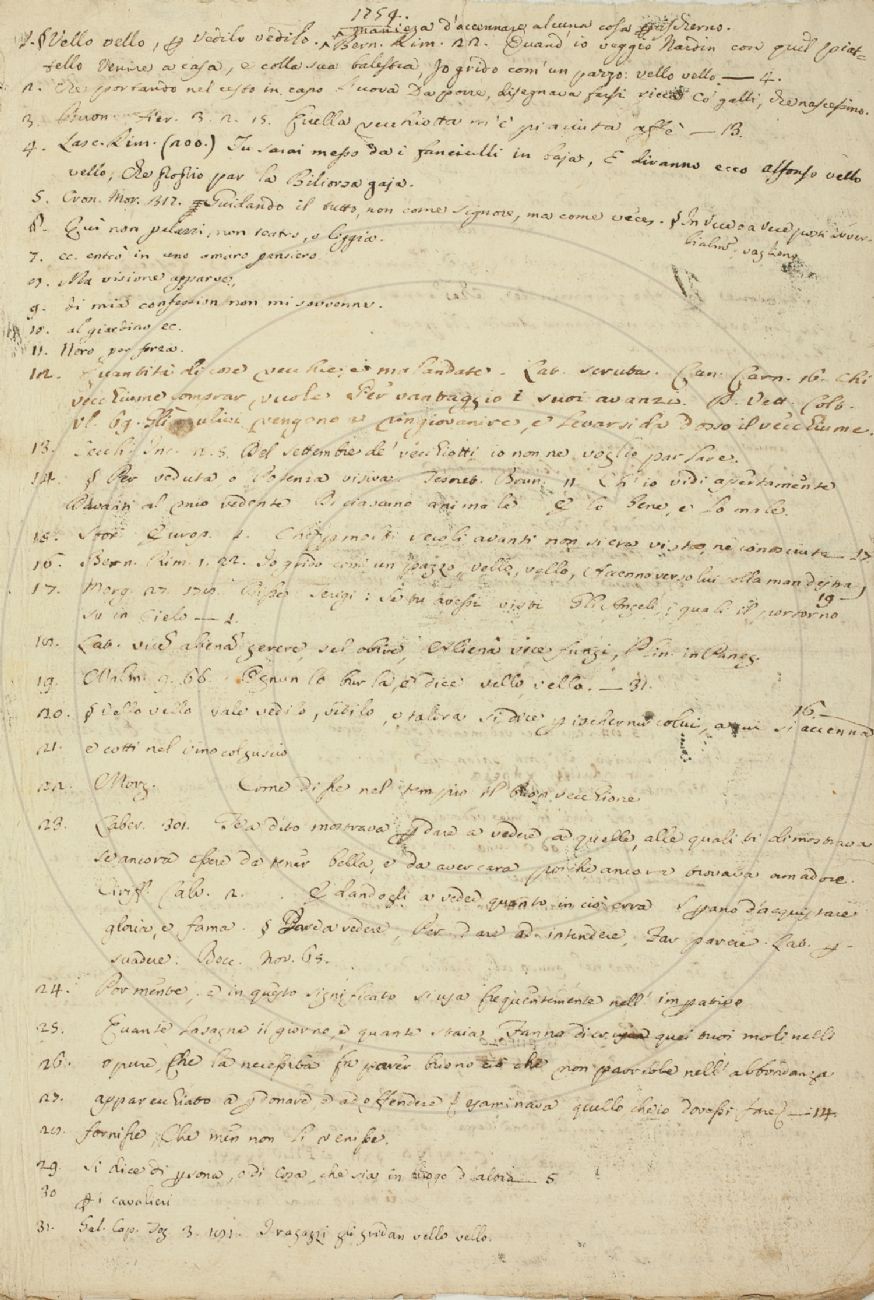 1754.
maniera d'accennare alcuna cosa ꝑ ischerno.
1. § Vello vello, ꝑ vedilo vedilo. Bern. Rim. 22. Quand' io veggio Nardin con quel piat-
tello Venire a casa, e colla sua balestra Io grido com' un pazzo: vello vello — 4.
2. Che portando nel cesto in capo l'uova Da porre, disegnava farsi ricca Co' galli, che nascessino.
3. Buon. Fier. 3. 2. 15. Quella vecchiotta m'è piaciuta affè — 13.
4. Lasc. Rim. (200.) Tu sarai messo da i fanciulli in baja, E diranno ecco Alfonso vello
vello, Che par la Biliorsa gaja.
5. Cron. Mor. 317. Guidando il tutto, non come Signore, ma come vece. § In vece o a vece posti avver-
bialm.
6. Qui non palazzi, non teatro, o loggia.
7. ec. entrò in uno amaro pensiero
8. Ma visione apparve,
9. di mia confession non mi sovvenne.
10. al giardino ec.
11. Noro, per forza.
12. Quantità di cose vecchie, e malandate. Lab. scruta. Can. Carn. 16. Chi
vecchiume comprar vuole Per vantaggio i suoi avanzi. P. Vett. Colt.
Vl. 69. Gli ulivi vengono a ringiovanire, e levarsi da dosso il vecchiume.
13. Cecch. Inc. 2. 5. Del settembre de' vecchiotti io non ne voglio parlare.
14. § Per veduta o Potenza visiva. Tesoret. Brun. 11. Ch' io vidi apertamente
Davanti al mio vedente Di ciascuno animale E lo bene, e lo male.
15. Stor. Europ. 1. Che ꝑ molti secoli avanti non si era vista, nè conosciuta — 17
16. Bern. Rim. 1. 22. Io grido com' un pazzo, vello, vello, Accenno verso lui colla man destra
17. Morg. 27. Disse Terigi: Se tu avessi visti Gli Angeli, i quali il portorno 19 —
Su in Cielo — 1.
18. Lab. vicē alienā gerere, vel obire, Alienā vice fungi, Plin. in Paneg.
19. Malm. 9. 66. Ognun lo burla, e dice vello, vello. — 31.
20. § Vello vello vale vedilo, vedilo, e talora si dice ꝑ ischernir colui, a cui si accenna 16 —
21. e cotti nel vino col guscio
22. Morg. Come disse nel tempio il buon vecchione
23. Laber. 301. Te a dito mostrava ꝑ dare a vedere a quelle, alle quali ti dimostrava
se ancora essere da tener bella, e da aver cara, poichè ancora trovava amadore.
Ciriff. Calv. 2. E dandogli a veder, quanto in ciò erra d'acquistare
gloria, e fama. § Dare a vedere, Per Dare ad intendere, Far parere. Lat. ꝑ-
suadere. Bocc. Nov. 65.
24. Por mente, e in questo significato si usa frequentemente nell' imperativo
25. Quante lasagne il giorno, e quante staia Fanno di crusca quei tuoi molinelli
26. opure, Che la necessità fa paver buono ciò che non parrebbe nell' abbondanza
27. apparecchiato a ꝑdonare, e ad offendere (esaminava quello ch' io dovessi fare) — 14
28. fornisse, Che men non li venisse.
29. si dice di ꝑsona, o di cosa, che sia in luogo d'altra — 5
30 ꝑ i cavalieri
31. Sal. Cap. I ragazzi gli gridan vello vello.